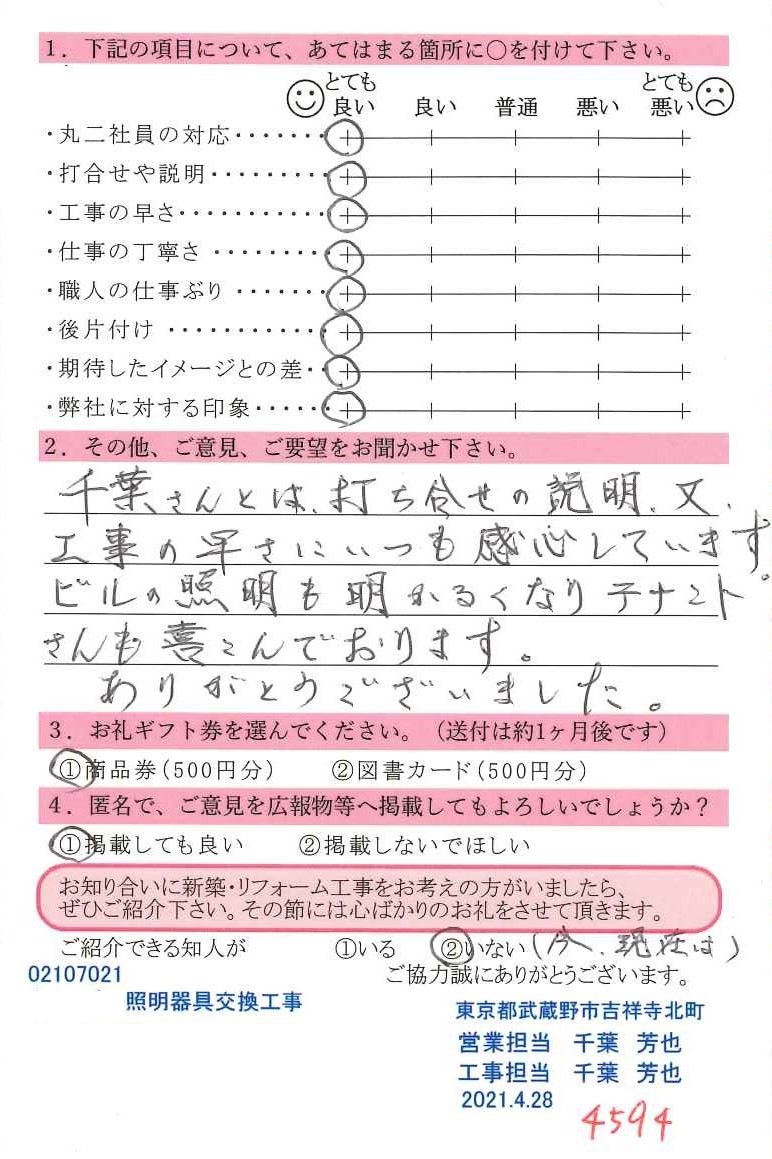 1．下記の項目について、あてはまる箇所に○を付けて下さい。
とても良い 良い 普通 悪い とても悪い
・丸二社員の対応・・・・・・・
・打合せや説明・・・・・・・・・
・工事の早さ・・・・・・・・・・・
・仕事の丁寧さ・・・・・・・・
・職人の仕事ぶり・・・・・・・
・後片付け・・・・・・・・・・・
・期待したイメージとの差・・
・弊社に対する印象・・・・・
2．その他、ご意見、ご要望をお聞かせ下さい。
千葉さんとは、打ち合せの説明、又、
工事の早さにいつも感心しています。
ビルの照明も明かるくなりテナント
さんも喜こんでおります。
ありがとうございました。
3．お礼ギフト券を選んでください。（送付は約1ヶ月後です）
①商品券（500円分） ②図書カード（500円分）
4．匿名で、ご意見を広報物等へ掲載してもよろしいでしょうか？
①掲載しても良い ②掲載しないでほしい
お知り合いに新築・リフォーム工事をお考えの方がいましたら、
ぜひご紹介下さい。その節には心ばかりのお礼をさせて頂きます。
ご紹介できる知人が ①いる ②いない（今、現在は）
02107021 ご協力誠にありがとうございます。
照明器具交換工事
東京都武蔵野市吉祥寺北町
営業担当 千葉 芳也
工事担当 千葉 芳也
2021.4.28
4594